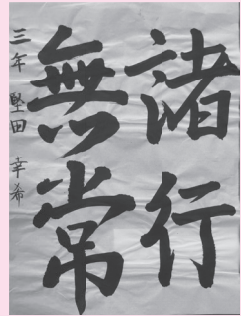 諸行
無常
三年 堅田 幸希